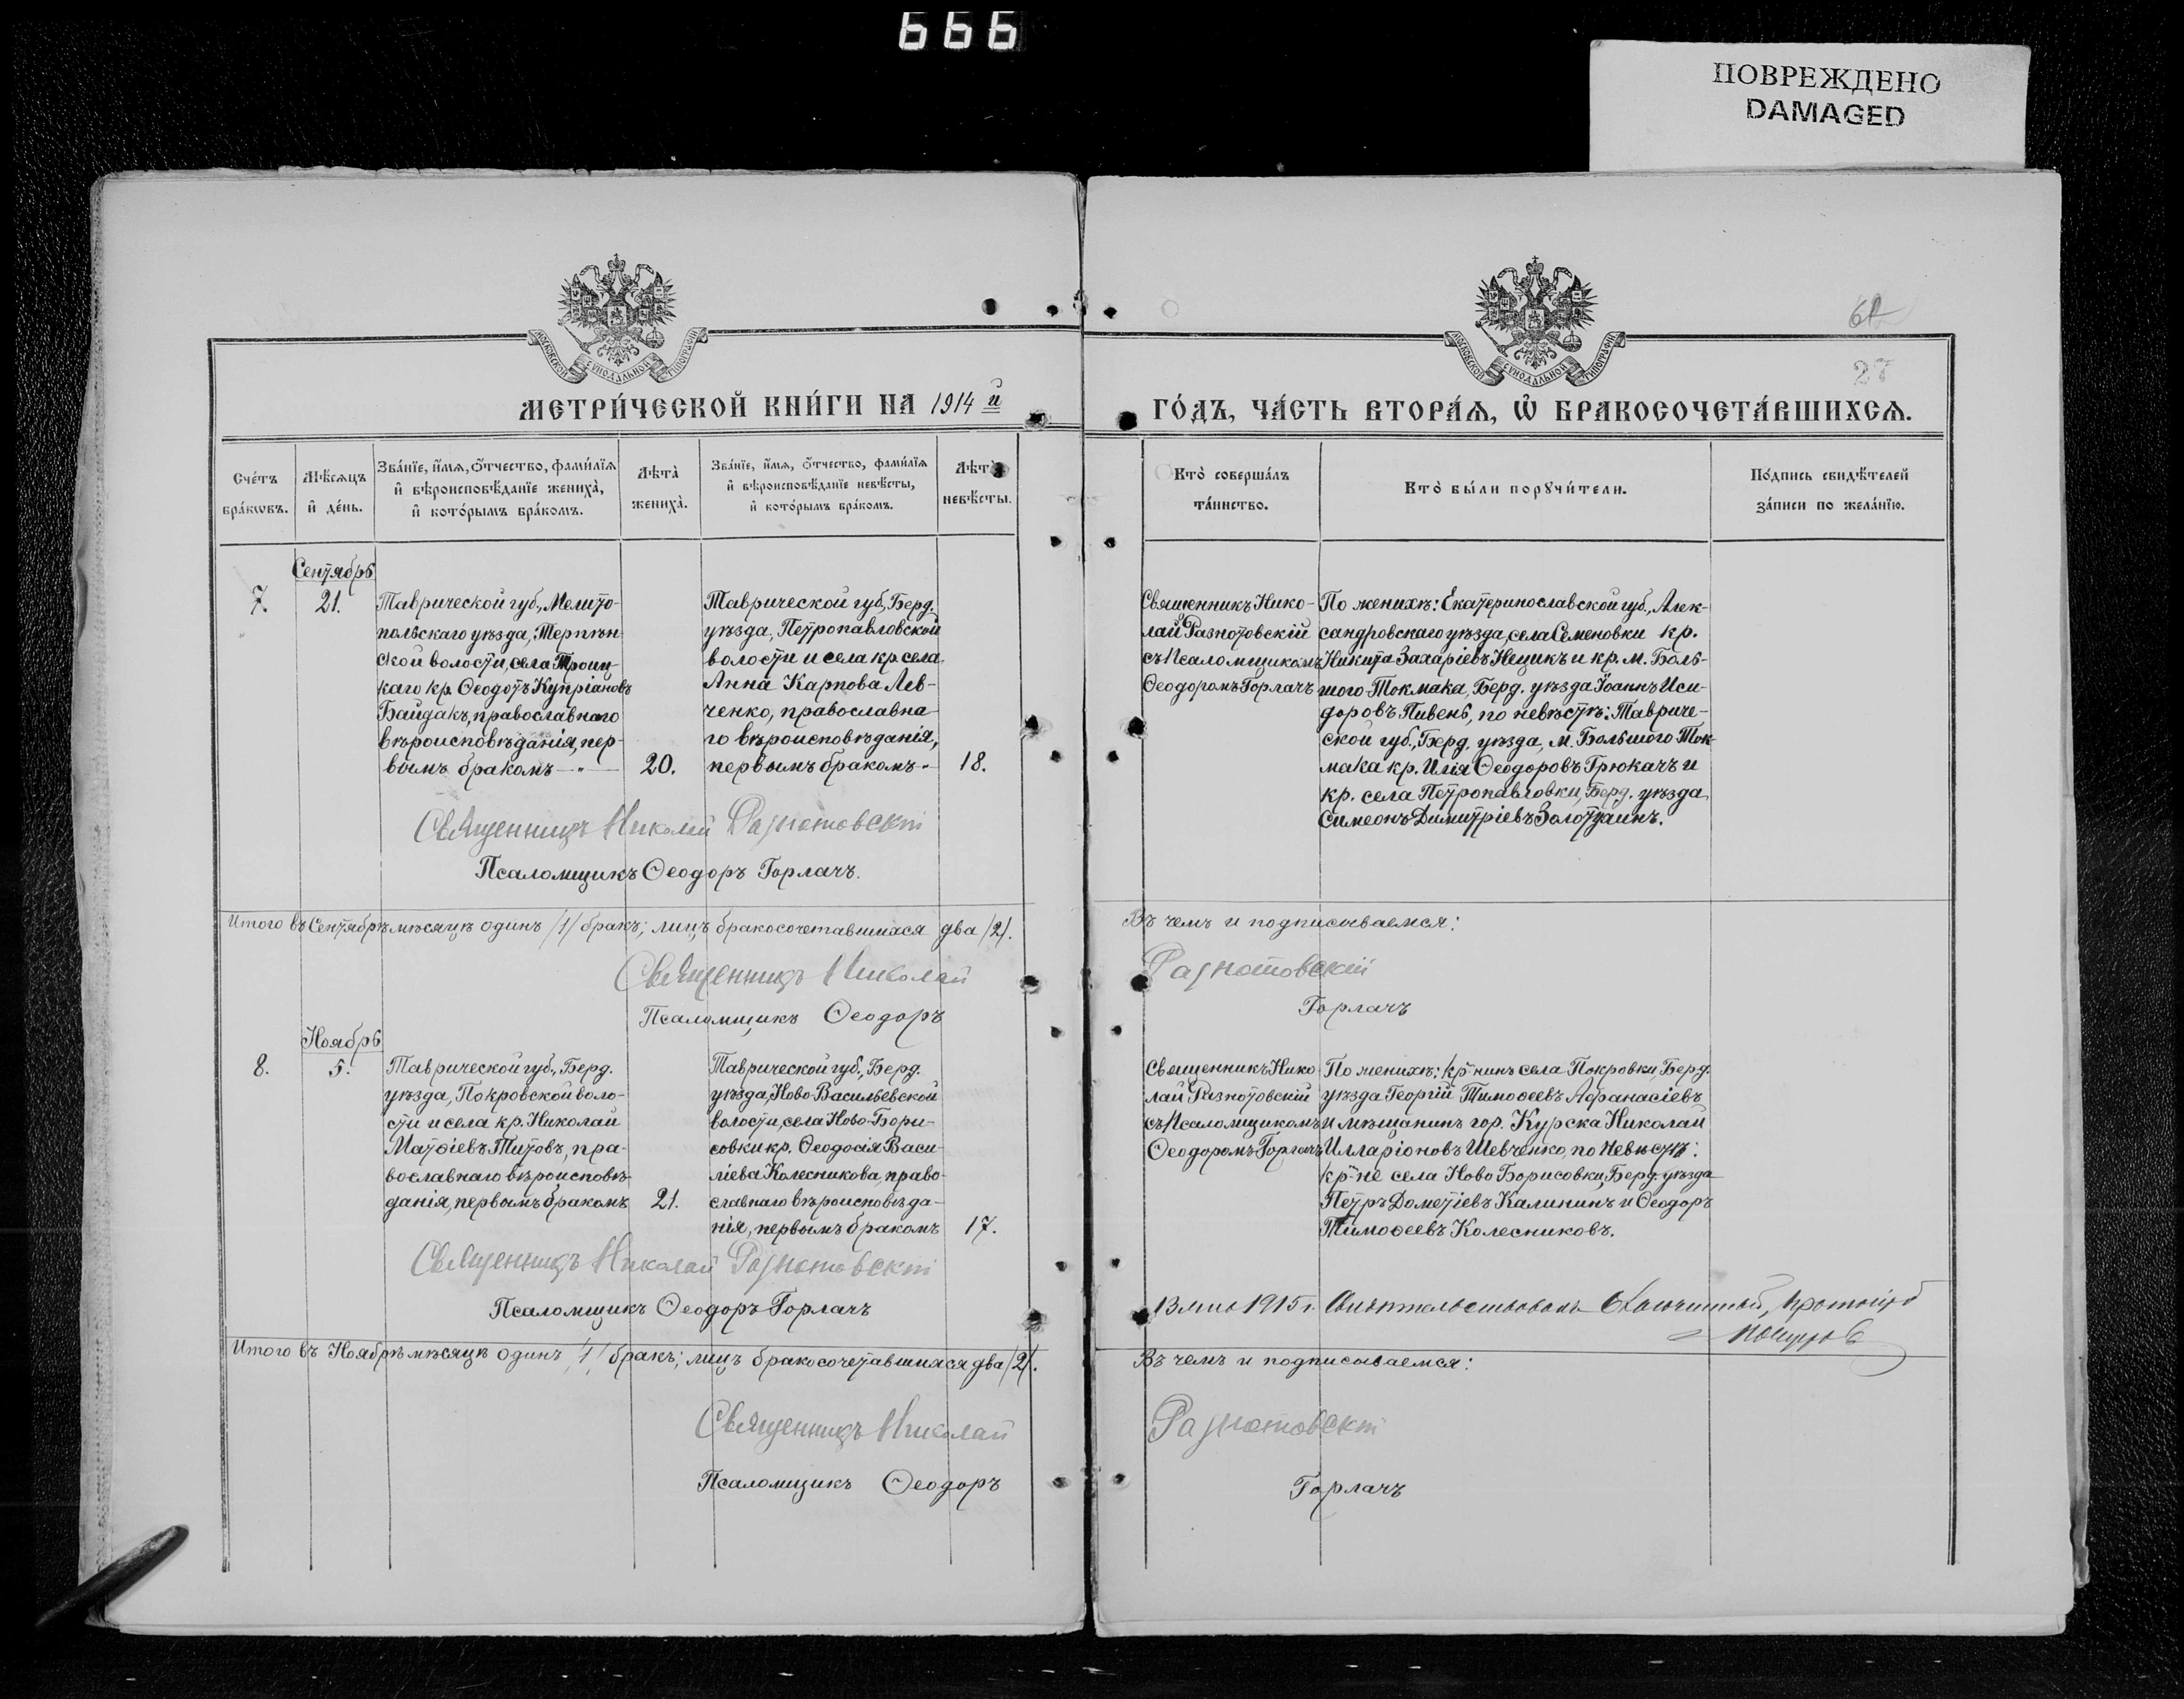 666
ПОВРЕЖДЕНО
DAMAGED
27
МЕТРИ́ЧЕСКОЙ КНИ́ГИ НА 1914 й
ГО́ДЪ, ЧА́СТЬ ВТОРА́Ѧ, Ѡ҆ БРАКОСОЧЕТА́ВШИХСѦ.
Сче́тъ бра́кѡвъ.
Мѣ́сѧцъ и҆ де́нь.
Зва́нїе, и҆́мѧ, ѻ҆́тчество, фами́лїѧ
и҆ вѣроисповѣ́данїе жениха̀,
и҆ кото́рымъ бра́комъ.
Лѣта̀ жениха̀.
Зва́нїе, и҆́мѧ, ѻ҆́тчество, фами́лїѧ
и҆ вѣроисповѣ́данїе невѣ́сты,
и҆ кото́рымъ бра́комъ.
Лѣта̀ невѣ́сты.
Кто̀ соверша́лъ
та́инство.
Кто̀ бы́ли порꙋчи́тели.
По́дпись свидѣ́телей
за́писи по жела́нїю.
Сентябрь
7.
21.
Таврической губ., Мелито-
польскаго уѣзда, Терпѣн
ской волости, села Троиц-
каго кр. Ѳеодотъ Купріановъ
Байдакъ, православнаго
вѣроисповѣданія, пер-
вымъ бракомъ — „ —
20.
Таврической губ., Берд.
уѣзда, Петропавловской
волости и села кр. села
Анна Карпова Лев-
ченко, православна-
го вѣроисповѣданія,
первымъ бракомъ „
18.
Священникъ Нико-
лай Разнотовскій
съ Псаломщикомъ
Ѳеодоромъ Горлачъ
По женихѣ: Екатеринославской губ., Алек-
сандровскаго уѣзда, села Семеновки кр.
Никита Захаріевъ Нецикъ и кр. м. Боль-
шого Токмака, Берд. уѣзда Іоаннъ Иси-
доровъ Пивень, по невѣстѣ: Тавриче-
ской губ., Берд. уѣзда, м. Большого Ток
мака кр. Илія Ѳеодоровъ Грюкачъ и
кр. села Петропавловки, Берд. уѣзда
Симеонъ Димитріевъ
Священникъ Николай Разнотовскій
Псаломщикъ Ѳеодоръ Горлачъ.
Итого въ Сентябрѣ мѣсяцѣ одинъ /1/ бракъ; лицъ бракосочетавшихся два /2/.
Въ чемъ и подписываемся:
Священникъ Николай Разнотовскій
Псаломщикъ Ѳеодоръ Горлачъ
Ноябрь
8.
5.
Таврической губ., Берд.
уѣзда, Покровской воло-
сти и села кр. Николай
Матѳіевъ Титовъ, пра-
вославнаго вѣроисповѣ-
данія, первымъ бракомъ
21.
Таврической губ., Берд.
уѣзда, Ново-Васильевской
волости, села Ново-Бори-
совки кр. Ѳеодосія Васи-
ліева Колесникова, право-
славнаго вѣроисповѣда-
нія, первымъ бракомъ
17.
Священникъ Нико
лай Разнотовскій
съ Псаломщикомъ
Ѳеодоромъ Горлачъ
По женихѣ: кр-нинъ села Покровки, Берд.
уѣзда Георгій Тимоѳеевъ Аѳанасіевъ
и мѣщанинъ гор. Курска Николай
Илларіоновъ Шевченко, по невѣстѣ:
кр-не села Ново Борисовки, Берд. уѣзда
Петръ Дометіевъ Калининъ и Ѳеодоръ
Тимоѳеевъ Колесниковъ.
Священникъ Николай Разнотовскій
Псаломщикъ Ѳеодоръ Горлачъ
1915 г.
Итого въ Ноябрѣ мѣсяцѣ одинъ /1/ бракъ; лицъ бракосочетавшихся два /2/.
Въ чемъ и подписываемся:
Священникъ Николай Разнотовскій
Псаломщикъ Ѳеодоръ Горлачъ